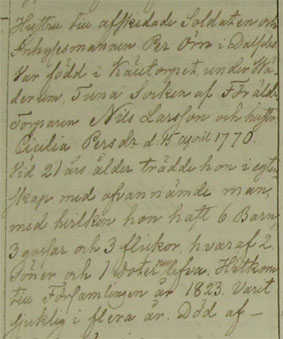 Hustru till afskedade Soldaten och
Inhysesmannen Per Örn i
Var född i under
Tuna Socken af Föräld.
Torparen Nils Larsson och hustru
Cicilia Persdr d. 15 april 1770.
Vid 21 års ålder trädde hon i egten
skap med ofvannämde man,
med hvilken hon haft 6 Barn
3 gossar och 3 flickor, hvaraf 2
Söner och 1 doter nu lefva. Hitkom
till Församlingen år 1823. Varit
sjuklig i flera år. Död af –